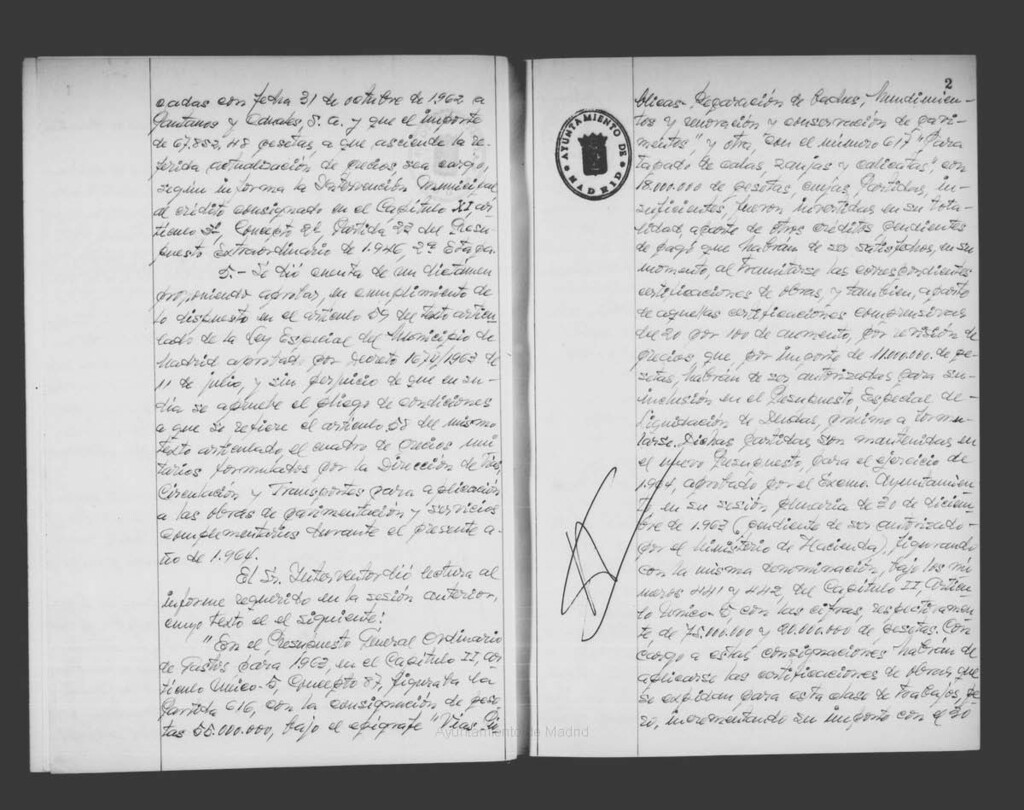 cadas con fecha 31 de octubre de 1962 a
Pantanos y Canales, S. a. y que el importe
de 67.852,48 pesetas a que asciende la re-
ferida actualización de precios, sea cargo,
según informa la Intervención Municipal,
al crédito consignado en el Capítulo XI ar-
tículo 3º, Concepto 2º Partida 22 del Presu-
puesto Extraordinario de 1.946, 2ª Etapa.
5.- Se dió cuenta de un dictamen
proponiendo aprobar, en cumplimiento de
lo dispuesto en el artículo 59 del texto articu-
lado de la Ley Especial del Municipio de
Madrid aprobado por Decreto 1674/1963 de
11 de julio, y sin perjuicio de que en su
día se apruebe el pliego de condiciones
a que se refiere el artículo 58 del mismo
texto articulado, el cuadro de precios uni-
tarios formulados por la Dirección de Vías,
Circulación y Transportes para aplicación
a las obras de pavimentación y servicios
complementarios durante el presente a-
ño de 1.964.
El Sr. Interventor dió lectura al
informe requerido en la sesión anterior,
cuyo texto es el siguiente:
"En el Presupuesto General Ordinario
de Gastos para 1963, en el Capítulo II, ar-
tículo Único-5, Concepto 87, figuraba la
Partida 616, con la consignación de pese-
tas 55.000.000, bajo el epígrafe "Vías Pú-
2
AYUNTAMIENTO DE MADRID
blicas- Reparación de baches, hundimien-
tos y renovación y conservación de pavi-
mentos" y otra, con el número 617 "Para
tapado de calas, zanjas y calicatas", con
18.000.000 de pesetas, cuyas Partidas, in-
suficientes, fueron invertidas en su tota-
lidad, aparte de otros créditos pendientes
de pago que habrán de ser satisfechos, en su
momento, al tramitarse las correspondientes
certificaciones de obras, y también, aparte
de aquellas certificaciones
del 20 por 100 de aumento, por revisión de
precios que, por importe de 11.000.000 de pe-
setas, habrán de ser autorizadas para su
inclusión en el Presupuesto Especial de
Liquidación de Deudas, próximo a formu-
larse. Dichas partidas son mantenidas en
el nuevo Presupuesto, para el ejercicio de
1.964, aprobado por el Excmo. Ayuntamien-
to, en su sesión plenaria de 30 de diciem-
bre de 1.963 (pendiente de ser autorizado
por el Ministerio de Hacienda), figurando
con la misma denominación, bajo los nú-
meros 441 y 442, del Capítulo II, Artícu-
lo Único-5, con las cifras, respectivamen-
te de 75.000.000 y 20.000.000 de pesetas. Con
cargo a estas consignaciones habrán de
aplicarse las certificaciones de obras, que
se expidan para esta clase de trabajos, pe-
ro, incrementando su importe con el 20
Ayuntamiento de Madrid